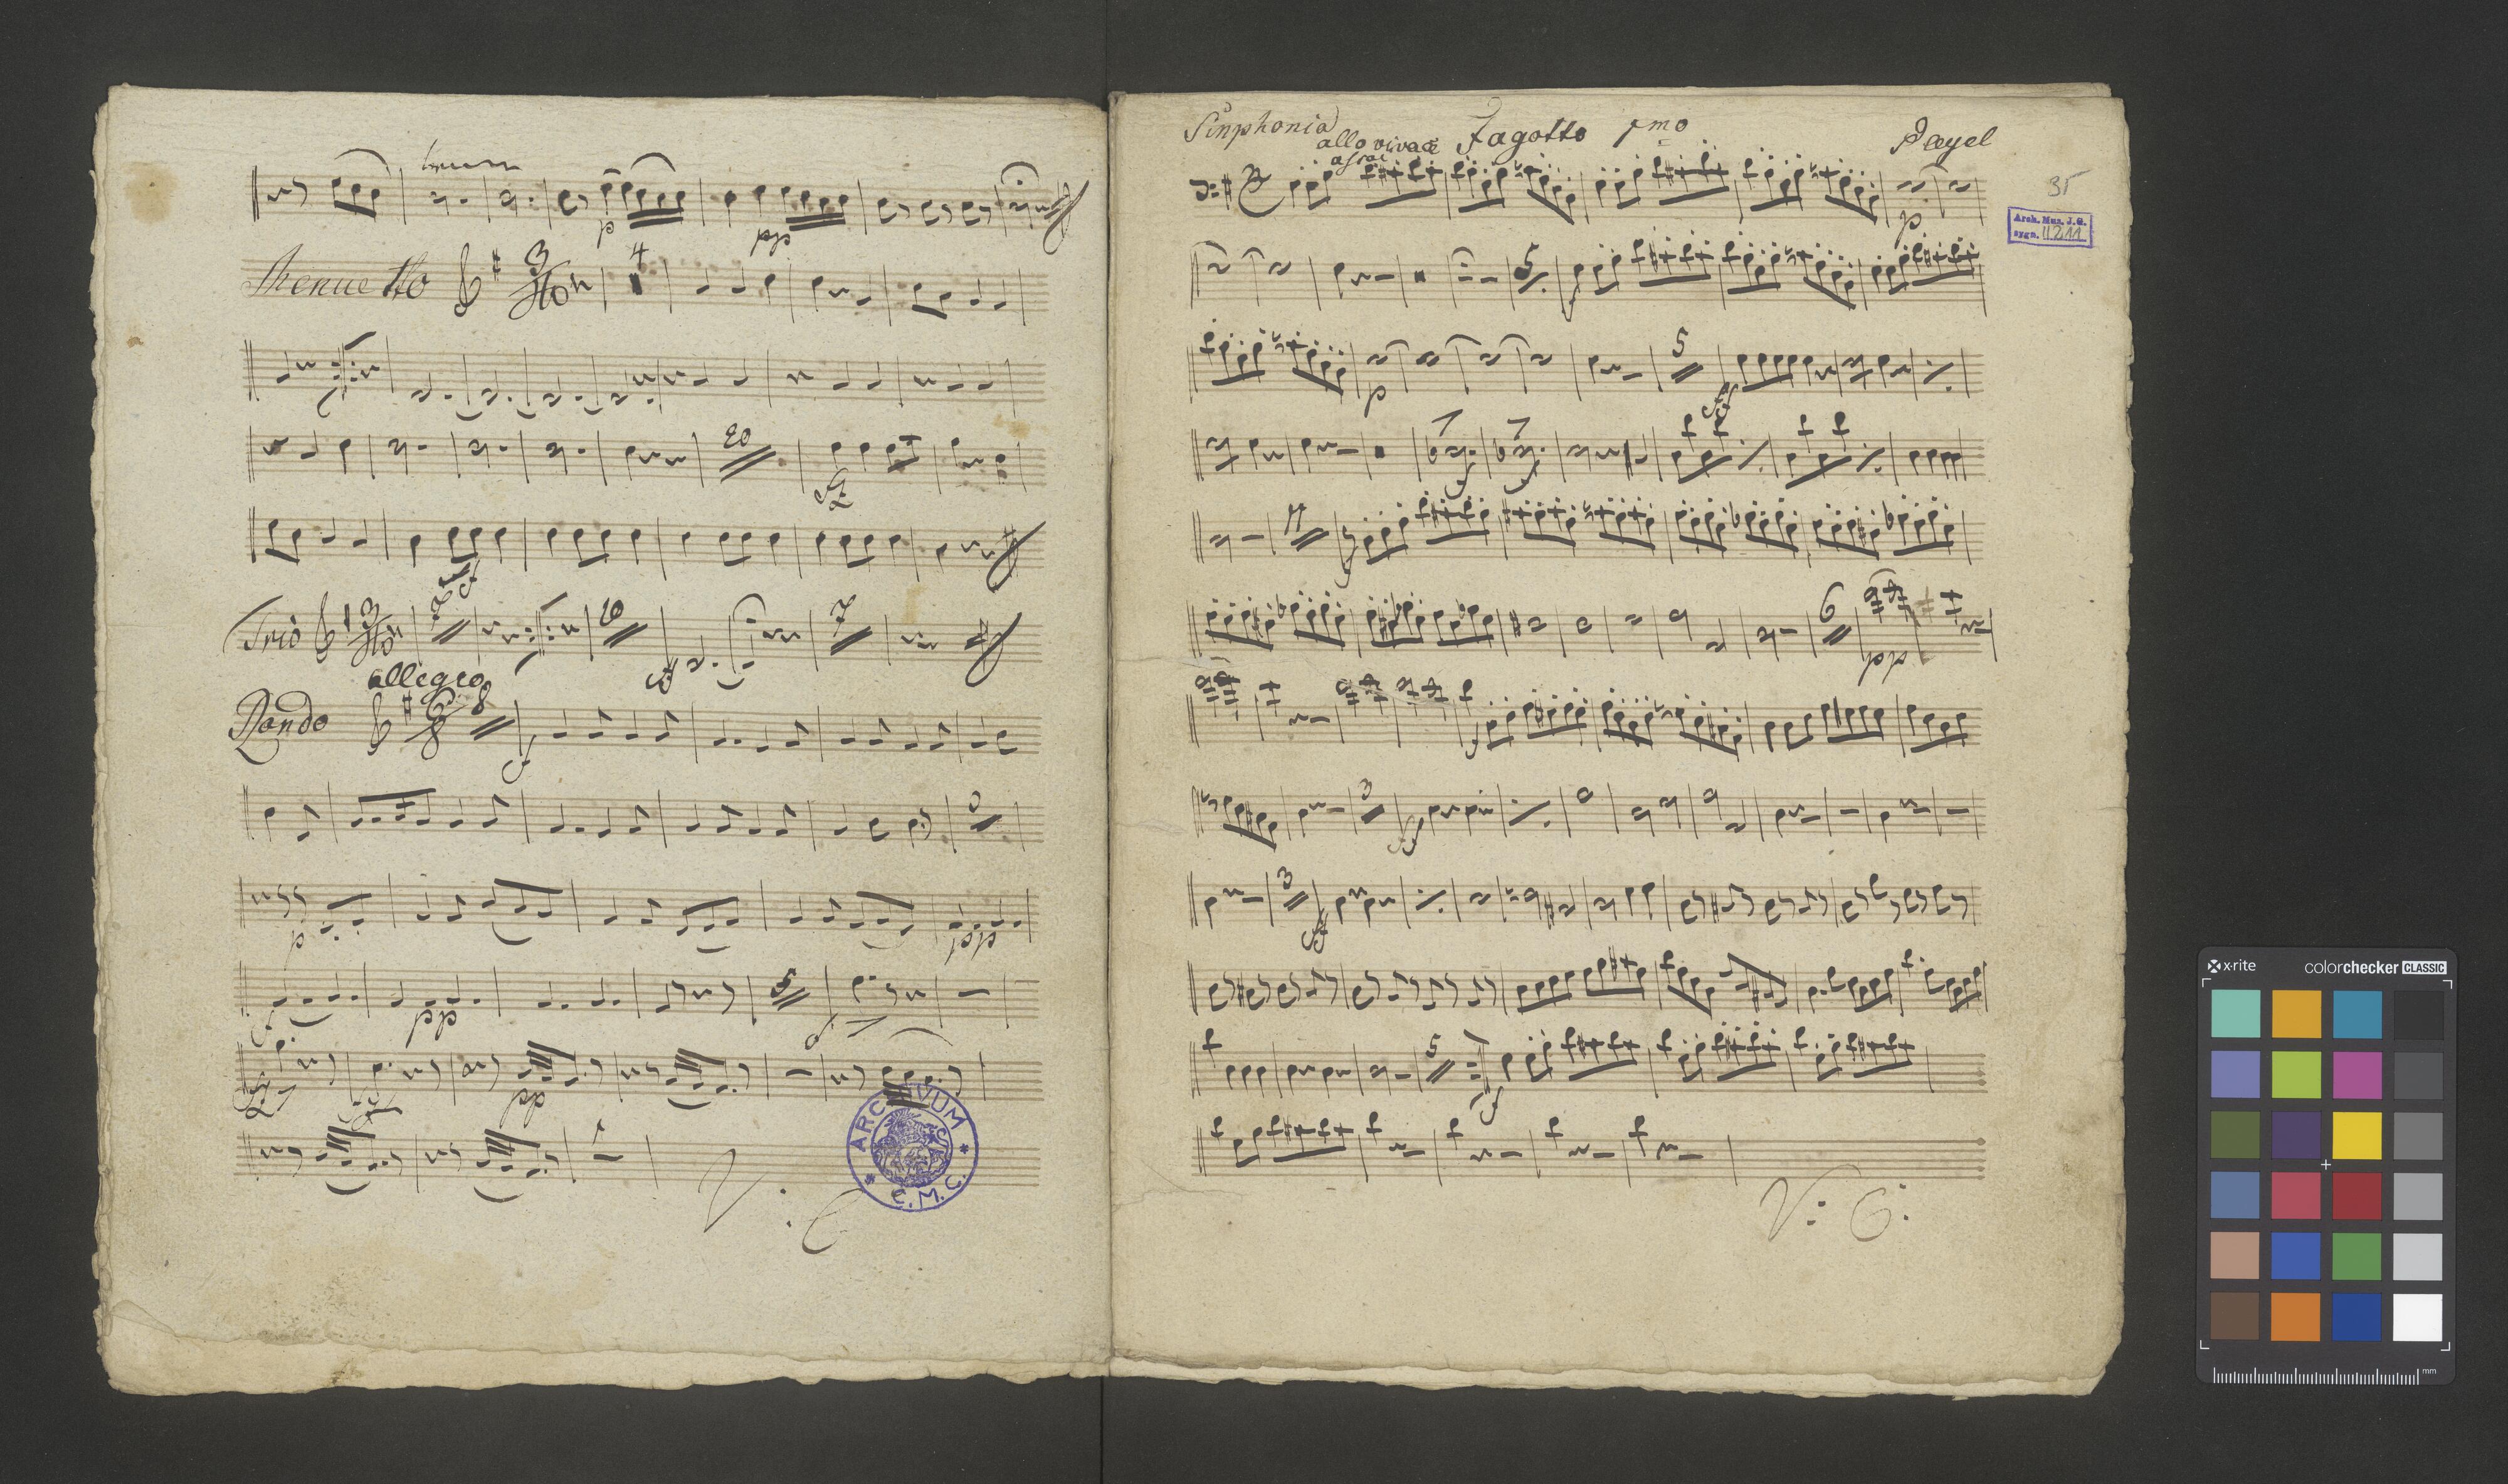 p
pp
Menuetto 3 4
20
Trio 3 7 20 7
allegro
Rondo 6 8 8
f
p
pp
pp
5
pp
V:
ARCHIVUM
* C.M.C. *
Sinphonia
allo vivace
assai
Fagotto 1mo
Pleyel
35
Arch. Mus. J.G.
sygn. II 211
p
5
p
5
ff
6
pp
3
3
ff
5
f
x-rite
colorchecker CLASSIC
mm